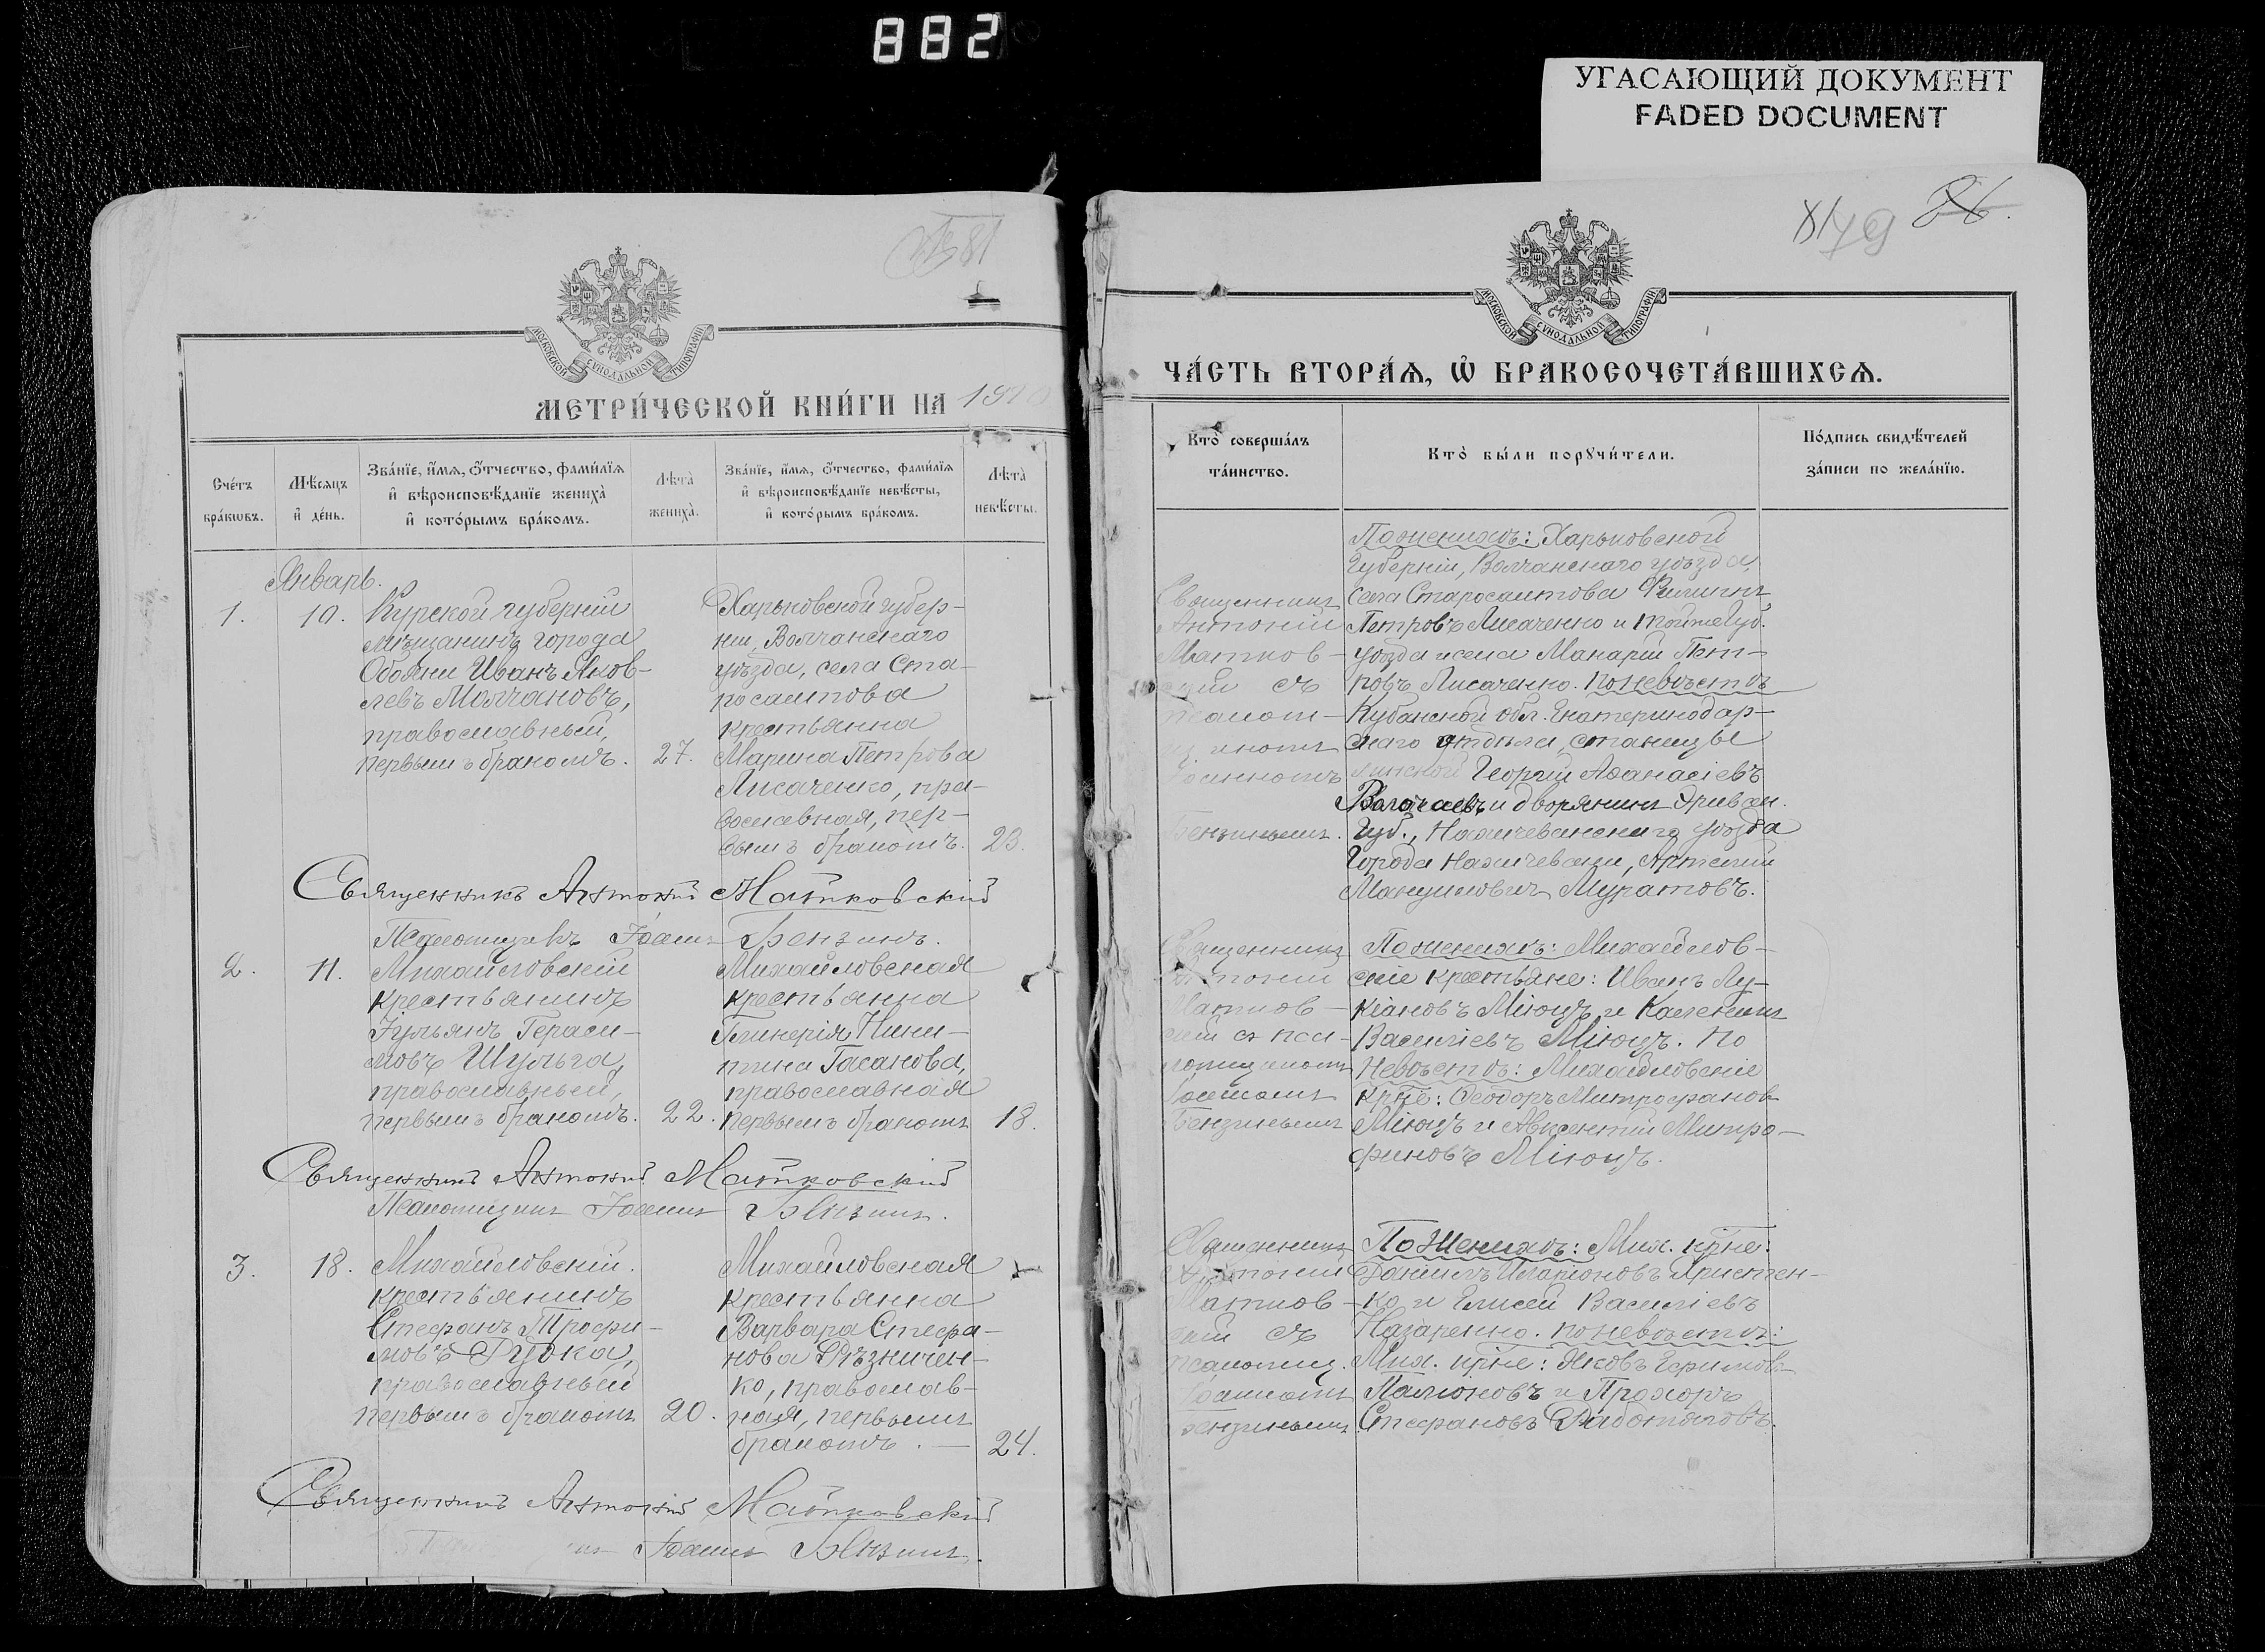 882
УГАСАЮЩИЙ ДОКУМЕНТ
FADED DOCUMENT
81
МОСКОВСКОЙ СѴНОДАЛЬНОЙ ТИПОГРАФІИ
МЕТРИ́ЧЕСКОЙ КНИ́ГИ НА 19
Сче́тъ бра́кѡвъ.
Мѣ́сяцъ и҆ де́нь.
Зва́нїе, и҆́мѧ, ѻ҆́тчество, фами́лїѧ
и҆ вѣроисповѣ́данїе жениха̀
и҆ кото́рымъ бра́комъ.
Лѣта̀ жениха̀.
Зва́нїе, и҆́мѧ, ѻ҆́тчество, фами́лїѧ
и҆ вѣроисповѣ́данїе невѣ́сты,
и҆ кото́рымъ бра́комъ.
Лѣта̀ невѣ́сты.
Январь.
1.
10.
Курской губерніи
мѣщанинъ города
Обояни Иванъ Яков-
левъ Молчановъ,
православный,
первымъ бракомъ.
27.
Харьковской губер-
ніи, Волчанскаго
уѣзда, села Ста-
росалтова
крестьянка
Марина Петрова
Лисаченко, пра-
вославная, пер-
вымъ бракомъ.
23.
Священникъ Антоній Матковскій
Псаломщикъ Іоаннъ Бензинъ.
2.
11.
Михайловскій
крестьянинъ
Іульянъ Гераси-
мовъ Шульга,
православный,
первымъ бракомъ.
22.
Михайловская
крестьянка
Гликерія Ники-
тина Гасанова,
православная
первымъ бракомъ
18.
Священникъ Антоній Матковскій
Псаломщикъ Іоаннъ Бензинъ.
3.
18.
Михайловскій
крестьянинъ
Стефанъ Трофи-
мовъ Рубка,
православный
первымъ бракомъ
20.
Михайловская
крестьянка
Варвара Стефа-
нова Рѣзничен-
ко, православ-
ная, первымъ
бракомъ. —
24.
Священникъ Антоній Матковскій
Іоаннъ Бензинъ.
79
МОСКОВСКОЙ СѴНОДАЛЬНОЙ ТИПОГРАФІИ
ЧА́СТЬ ВТОРА́Ѧ, Ѽ БРАКОСОЧЕТА́ВШИХСѦ.
Кто̀ соверша́лъ
та́инство.
Кто̀ бы́ли порꙋчи́тели.
По́дпись свидѣ́телей
за́писи по жела́нїю.
Священникъ
Антоній
Матков-
скій съ
Іоанномъ
Бензинымъ.
По женихѣ: Харьковской
Губерніи, Волчанскаго уѣзда,
села Старосалтова Филиппъ
Петровъ Лисаченко и той же Губ.
уѣзда и села Макарій Пет-
ровъ Лисаченко. По невѣстѣ
Кубанской обл. Екатеринодар-
скаго отдѣла, станицы
Георгій Аѳанасіевъ
и дворянинъ Эриван.
Губ., Нахичеванскаго уѣзда
Города Нахичевани,
Муратовъ.
Священникъ
Антоній
Матков-
скій съ пса-
ломщикомъ
Іоанномъ
Бензинымъ
По женихѣ: Михайлов-
скіе крестьяне: Иванъ Лу-
кіановъ Міюцъ и
Василіевъ Міюцъ. По
невѣстѣ: Михайловскіе
крне: Ѳеодоръ Митрофановъ
Міюцъ и Авксентій Митро-
фановъ Міюцъ.
Священникъ
Антоній
Матков-
скій съ
псаломщ.
Іоанномъ
Бензинымъ
По Женихѣ: Мих. крне:
Даніилъ Иларіоновъ Христен-
ко и Елисей Василіевъ
Назаренко. По невѣстѣ:
Мих. крне: Яковъ
и Прохоръ
Стефановъ Работяговъ.